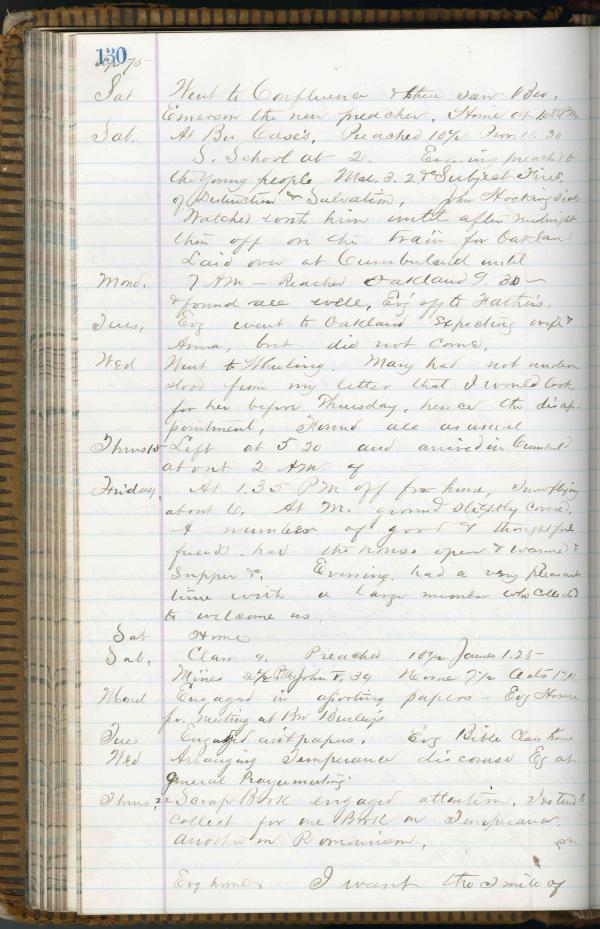 130
75
Sat Went to Confluence & there saw Bro.
Emerson the new preacher. Home at 10 PM
Sab. At Bro Case's. Preached 10½ Prov. 11. 30
S. School at 2. Evening preached to
the young people Mal. 3. 2 Subject Fires
of Destruction & Salvation, John Hocking sick
Watched with him until after midnight
then off on the train for Oakland
Laid over at Cumberland until
Mond. 7 AM — Reached Oakland 9. 30 —
& found all well, Evg off to Father's.
Tues, Evg went to Oakland expecting wife &
Anna, but did not come.
Wed Went to Wheeling. Mary had not under
stood from my letter that I would look
for her before Thursday, hence the disap-
pointment, Found all as usual
Left at 5 20 and arrived in Cumbld
about 2 AM of
Friday, At 1.35 PM off for home, Snow flying
about 6. At M. ground slightly covered.
A number of good & thoughtful
friends had the house open & warmed &
supper &c. Evening had a very pleasant
time with a large number who collected
to welcome us
Sat Home
Sab. Class 9, Preached 10½ James 1.25 —
Mines 2½ PM John V. 39 Home 7½ Acts 17.11
Mond Engaged in assorting papers — Evg Home
pr. meeting at Bro Burley's
Tues Engaged with papers. Evg Bible Class home
Wed Arranging Temperance discourse Eg at
general Prayermeeting
Thurs, 22 Scrap Book engaged attention, Instead
collect for one Book on Temperance
another on Romanism,
Evg home. I want the 2 mile of